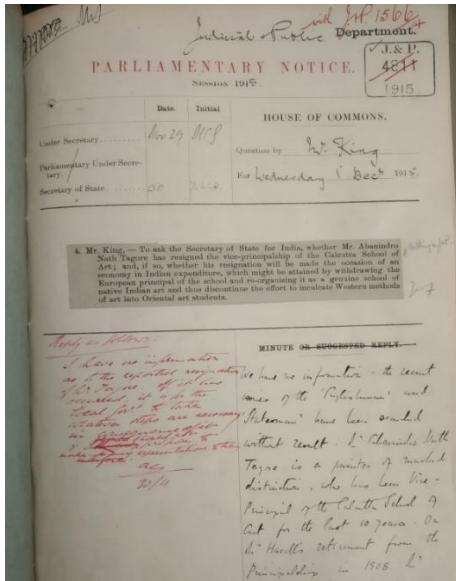 with J&P. 1566
Judicial & Public Department.
J. & P.
4811
1915
PARLIAMENTARY NOTICE.
SESSION 1915.
Date. Initial
HOUSE OF COMMONS.
Under Secretary Nov 29
Question by Mr. King
Parliamentary Under Secre-
tary.
For Wednesday 1 Decr 1915.
Secretary of State 30
4. Mr. King, — To ask the Secretary of State for India, whether Mr. Abanindro
Nath Tagore has resigned the vice-principalship of the Calcutta School of
Art; and, if so, whether his resignation will be made the occasion of an
economy in Indian expenditure, which might be attained by withdrawing the
European principal of the school and re-organising it as a genuine school of
native Indian art and thus discontinue the effort to inculcate Western methods
of art into Oriental art students.
Reply as follows:
I have no information
as to the reported resignation
of Mr. Tagore. If it has
occurred, it is for the
local govt to take
whatever steps are necessary
in consequence of it
to
make any representations to them
30/11
MINUTE OR SUGGESTED REPLY.
We have no information - the recent
issues of the "Englishman" and
Statesman have been searched
without result. Mr Abanindra Nath
Tagore is a painter of marked
distinction, who has been Vice-
Principal of the Calcutta School of
Art for the last 10 years. On
Mr Havell's retirement from the
Principalship in 1908 Mr